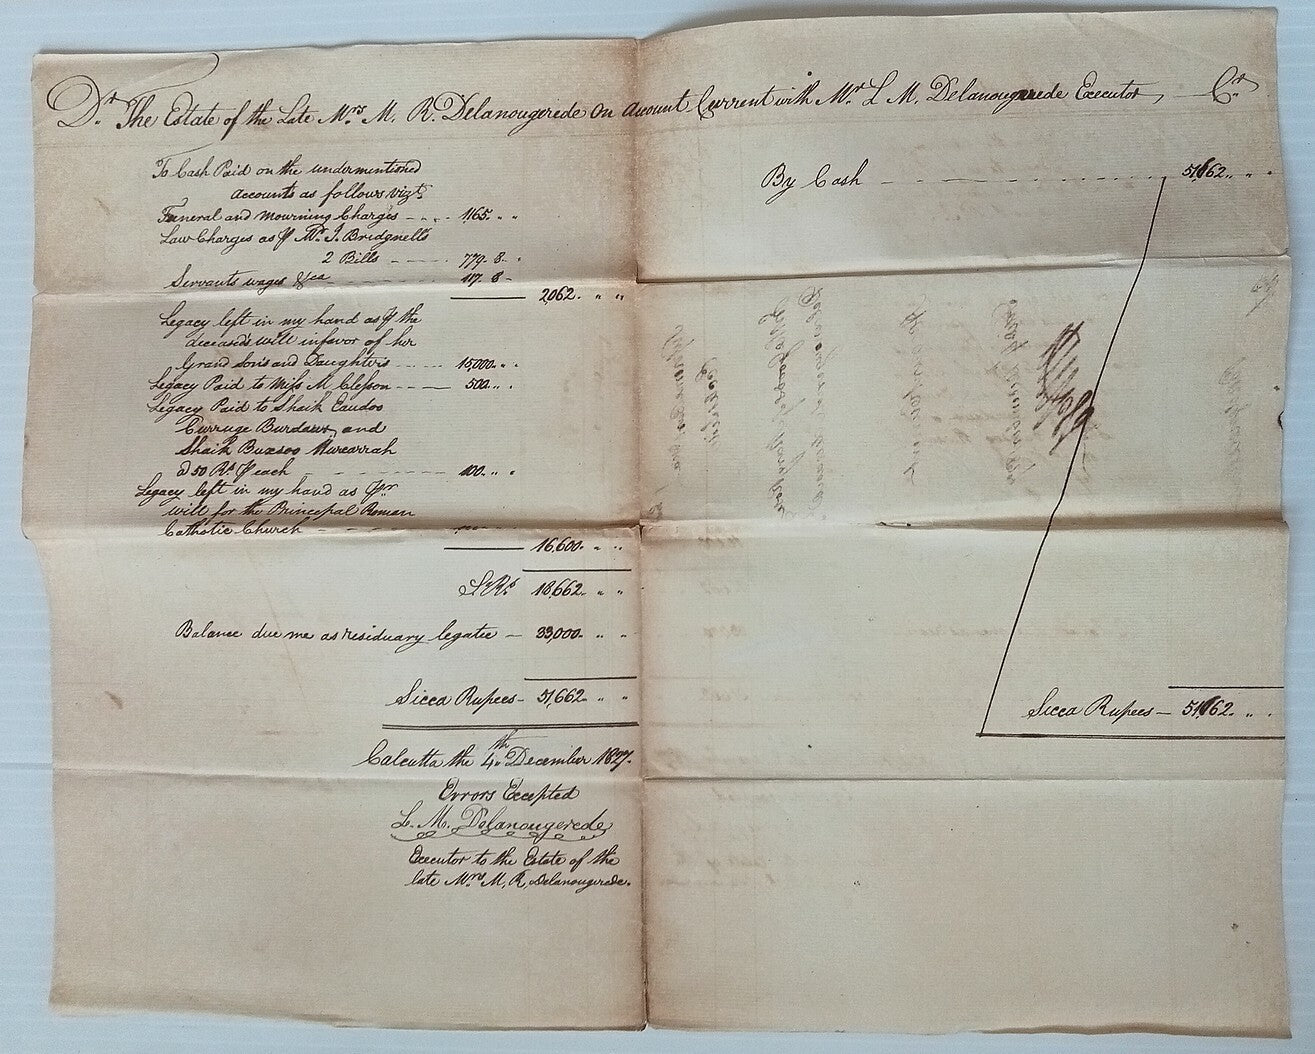 Dr. The Estate of the Late Mrs. M. R. Delanougerede in Account Current with Mr. L. M. Delanougerede Executor, Cr.
To Cash Paid on the undermentioned
accounts as follows vizt.
Funeral and Mourning Charges - - - 1165. " "
Law Charges as Pr Mr. J. Bridgnell's
2 Bills - - - 779. 8 -
Servants wages &ca - - - 117. 8 -
2062. " "
Legacy left in my hand as Pr the
deceased's will in favor of her
Grand Sons and Daughters - - - 15,000. " "
Legacy Paid to Miss M. - - - 500. " "
Legacy Paid to Shaik
and
Shaik
a 50 Rs. Pr each - - - 100. " "
Legacy left in my hand as Pr
will for the Principal Roman
Catholic Church - - -
16,600. " "
S. Rs. 18,662. " "
Balance due me as residuary legatee - 33,000. " "
Sicca Rupees - 51,662. " "
Calcutta the 4th December 1827.
Errors Excepted
L. M. Delanougerede
Executor to the Estate of the
late Mrs. M. R. Delanougerede.
By Cash - - - 51,662. " "
Sicca Rupees - 51,662. " "